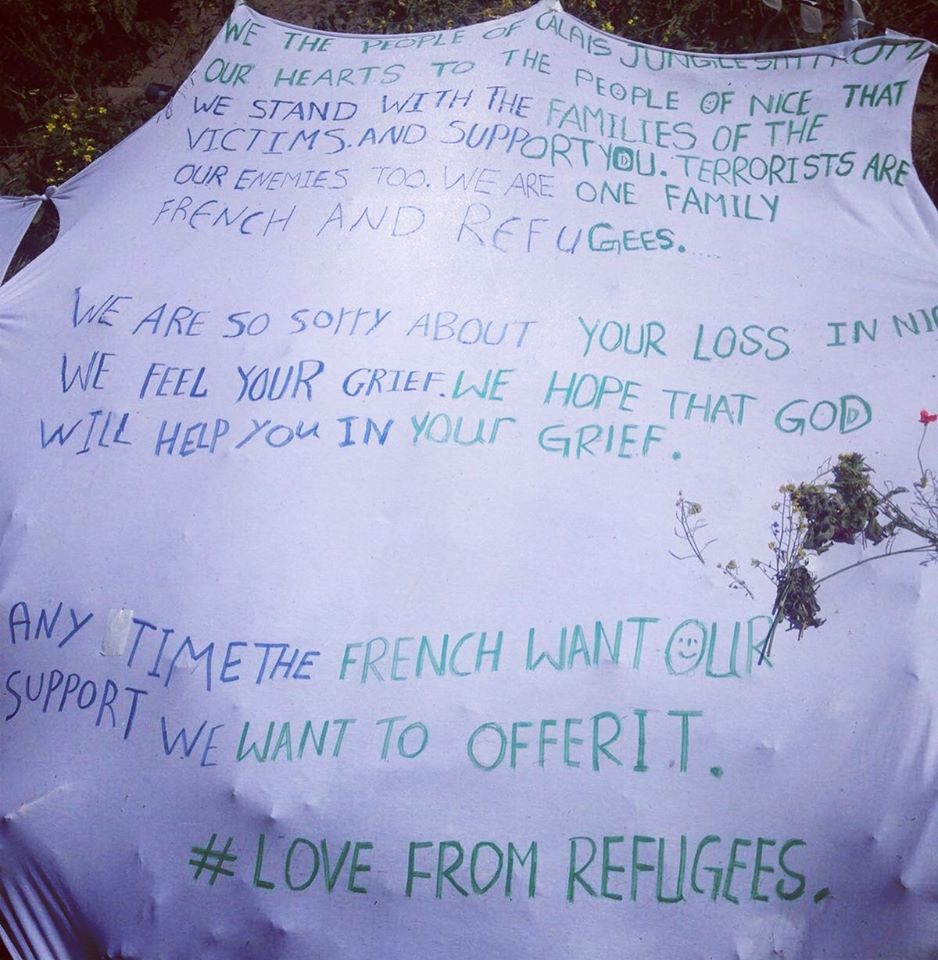 WE THE PEOPLE OF CALAIS JUNGLE SAY FROM
OUR HEARTS TO THE PEOPLE OF NICE THAT
WE STAND WITH THE FAMILIES OF THE
VICTIMS.AND SUPPORT YOU. TERRORISTS ARE
OUR ENEMIES TOO. WE ARE ONE FAMILY
FRENCH AND REFUGEES.
WE ARE SO SOrrY ABOUT YOUR LOSS IN NIC
WE FEEL YOUR GRIEF.WE HOPE THAT GOD
WILL HELP YOU IN YOUr GRIEF.
ANY TIME THE FRENCH WANT OUR
SUPPORT WE WANT TO OFFER IT.
# LOVE FROM REFUGEES.